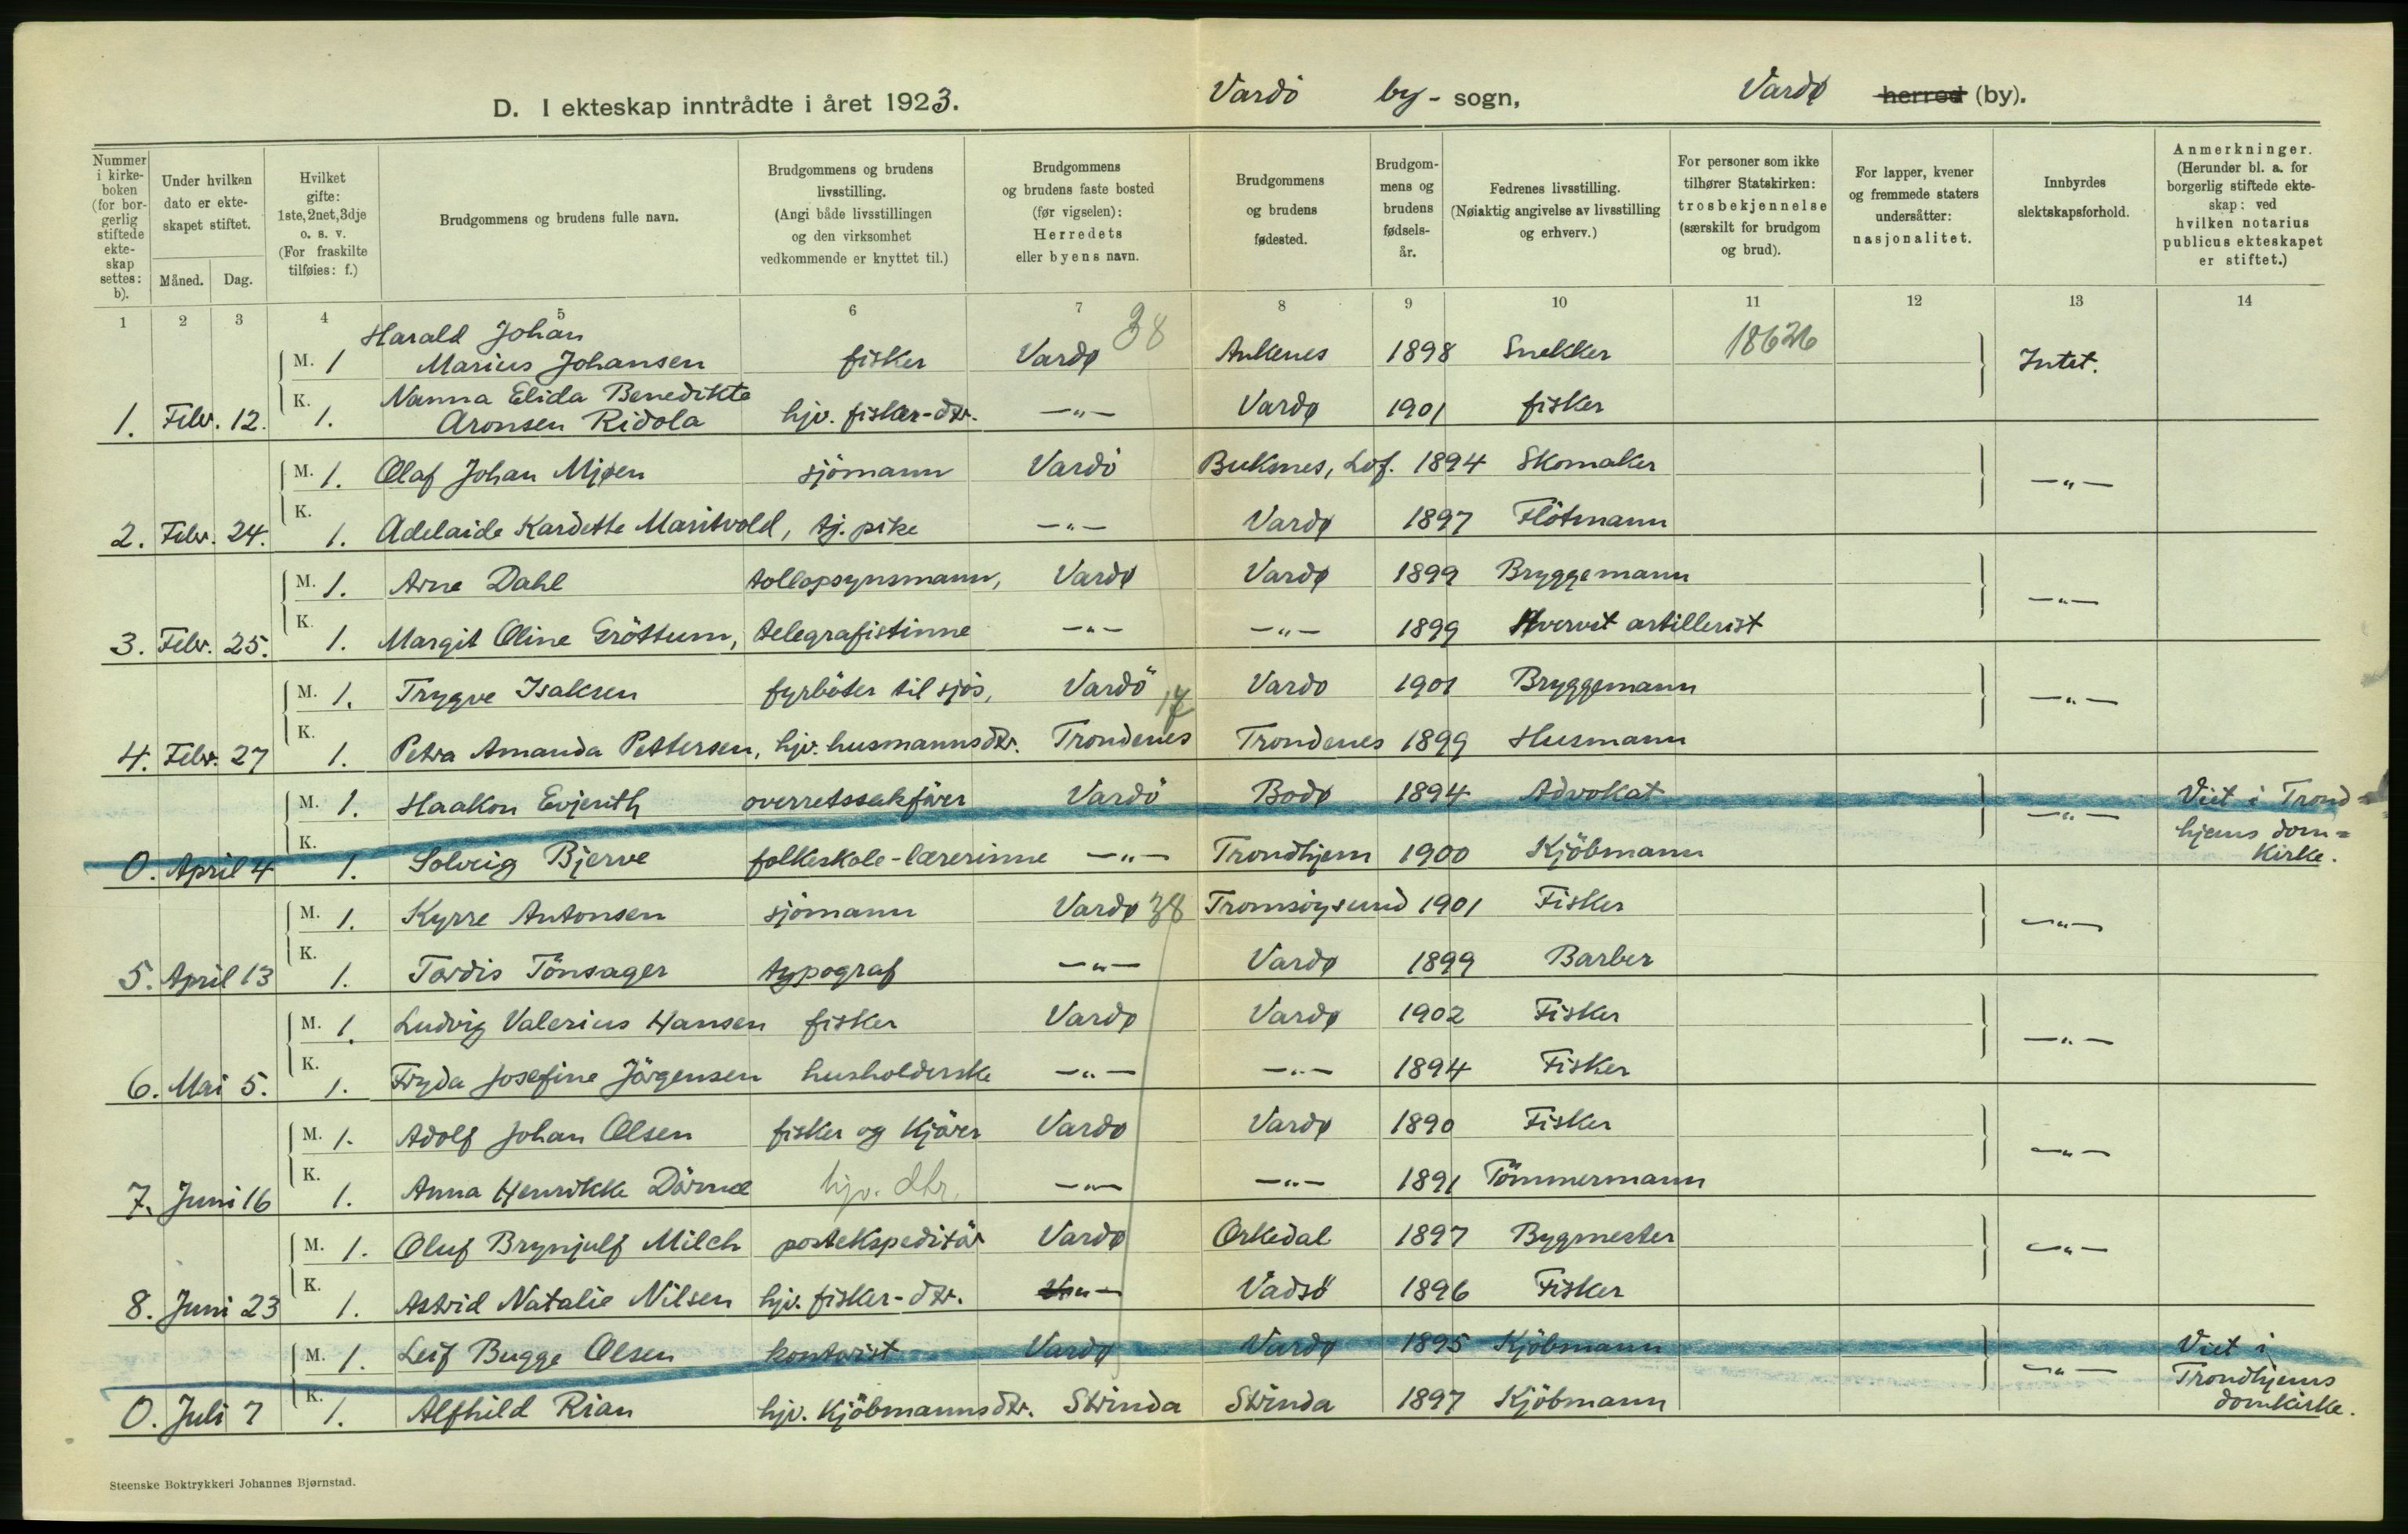 D. I ekteskap inntrådte i året 1923. Vardö by - sogn, Vardø herred (by).
Nummer i kirkeboken (for borgerlig stiftede ekteskap settes: b). Under hvilken dato er ekteskapet stiftet. Hvilket gifte: 1ste, 2net, 3dje o. s. v. (For fraskilte tilføies: f.) Brudgommens og brudens fulle navn. Brudgommens og brudens livsstilling. (Angi både livsstillingen og den virksomhet vedkommende er knyttet til.) Brudgommens og brudens faste bosted (før vigselen): Herredets eller byens navn. Brudgommens og brudens fødested. Brudgommens og brudens fødselsår. Fedrenes livsstilling. (Nøiaktig angivelse av livsstilling og erhverv.) For personer som ikke tilhører Statskirken: trosbekjennelse (særskilt for brudgom og brud). For lapper, kvener og fremmede staters undersåtter: nasjonalitet. Innbyrdes slektskapsforhold. Anmerkninger. (Herunder bl. a. for borgerlig stiftede ekteskap: ved hvilken notarius publicus ekteskapet er stiftet.)
Måned. Dag.
1 2 3 4 5 6 7 8 9 10 11 12 13 14
Harald Johan 38
M. 1 Marius Johansen fisker Vardø Ankenes 1898 Snekker 18626 Intet.
Nanna Elida Benedikte
1. Febr. 12. K. 1. Aronsen Ridola hjv. fisker-dtr. —"— Vardø 1901 fisker
M. 1. Olaf Johan Mjøen sjömann Vardö Buknes, Lof. 1894 Skomaker —"—
2. Febr. 24. K. 1. Adelaide Kardette Maritvold, tj. pike —"— Vardø 1897 Flötmann
M. 1. Arne Dahl tollopsynsmann, Vardø Vardø 1899 Bryggemann —"—
3. Febr. 25. K. 1. Margit Oline Gröttum, telegrafistinne —"— —"— 1899 Hvervet artillerist
M. 1. Trygve Isaksen fyrböter til sjös, Vardö 17 Vardo 1901 Bryggemann —"—
4. Febr. 27 K. 1. Petra Amanda Pettersen, hjv. husmannsdtr. Trondenes Trondenes 1899 Husmann
M. 1. Haakon Evjenth overretssakförer Vardö Bodø 1894 Advokat —"— Viet i Trond=
0. April 4 K. 1. Solveig Bjerve folkeskole-lærerinne —"— Trondhjem 1900 Kjöbmann hjems dom=
kirke.
M. 1. Kyrre Antonsen sjömann Vardø 38 Tromsöysund 1901 Fisker —"—
5. April 13 K. 1. Tordis Tönsager typograf —"— Vardø 1899 Barber
M. 1. Ludvig Valerius Hansen fisker Vardø Vardø 1902 Fisker —"—
6. Mai 5. K. 1. Fryda Josefine Jörgensen husholderske —"— —"— 1894 Fisker
M. 1. Adolf Johan Olsen fisker og kjörer Vardo Vardø 1890 Fisker —"—
7. Juni 16 K. 1. Anna Henrikke hjv. dtr. —"— —"— 1891 Tömmermann
M. 1. Oluf Brynjulf Milch postekspeditör Vardø Orkedal 1897 Bygmester —"—
8. Juni 23 K. 1. Astrid Natalie Nilsen hjv. fisker-dtr. —"— Vadsö 1896 Fisker
M. 1. Leif Bugge Olsen kontorist Vardø Vardø 1895 Kjöbmann —"— Viet i
0. Juli 7 K. 1. Alfhild Rian hjv. kjöbmannsdtr. Strinda Strinda 1897 Kjöbmann Trondhjems
domkirke.
Steenske Boktrykkeri Johannes Bjørnstad.